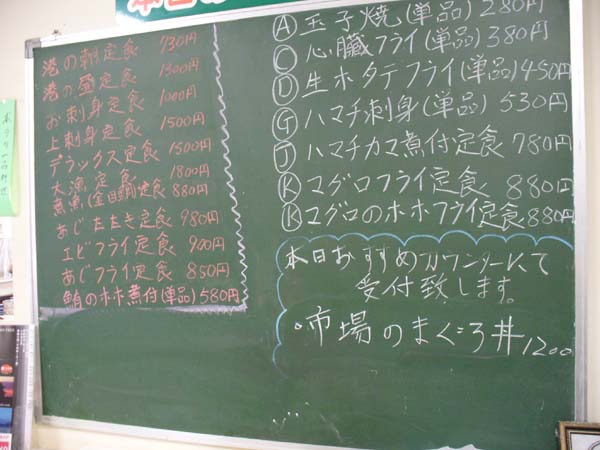 港の朝定食 730円
港の昼定食 1300円
お刺身定食 1000円
上刺身定食 1500円
デラックス定食 1500円
大漁定食 1800円
煮魚(金目鯛)定食 880円
あじたたき定食 980円
エビフライ定食 900円
あじフライ定食 850円
鮪のホホ煮付(単品) 580円
Ⓐ 玉子焼(単品) 280円
Ⓒ 心臓フライ(単品) 380円
Ⓓ 生ホタテフライ(単品) 450円
Ⓖ ハマチ刺身(単品) 530円
Ⓙ ハマチカマ煮付定食 780円
Ⓚ マグロフライ定食 880円
Ⓚ マグロのホホフライ定食 880円
本日おすすめカウンターにて
受付致します。
・市場のまぐろ丼 1200